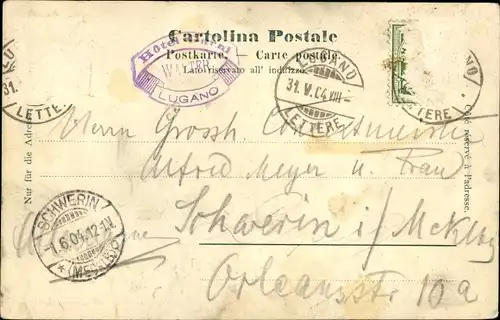 Cartolina Postale
Postkarte. — Carte postale.
Lato riservato all' indirizzo.
Hôtel
WALTER
LUGANO
LUGANO
31. V. 04. VIII —
LETTERE
NO
31.
LETTE
NO
TERE
Nur für die Adresse
Côté réservé à l'adresse.
Herrn Grossh.
Alfred Meyer u. Frau
Schwerin i/ Mcklbg
Orleansstr 10a
SCHWERIN
1.6.04.12-1N
* (MECKLB)